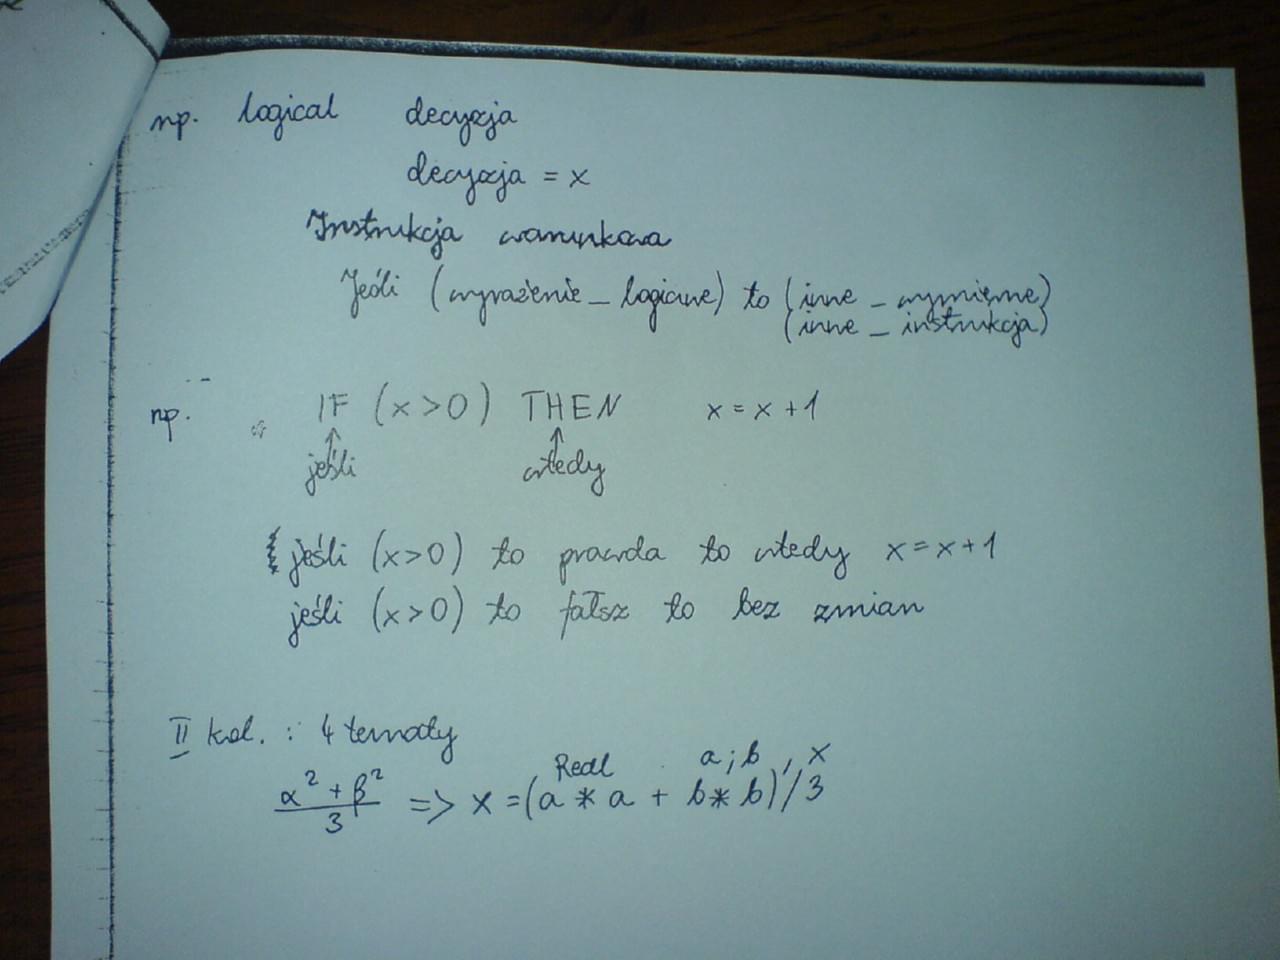 np. logical decyzja
decyzja = x
Instrukcja warunkowa
Jeśli (wyrażenie_logiczne) to (inne_wymienne)
(inne_instrukcja)
np. IF (x>0) THEN x = x + 1
jeśli wtedy
jeśli (x>0) to prawda to wtedy x = x + 1
jeśli (x>0) to fałsz to bez zmian
II kol. : 4 tematy
Real a ; b , x
α² + β² / 3 => x = (a * a + b * b) / 3